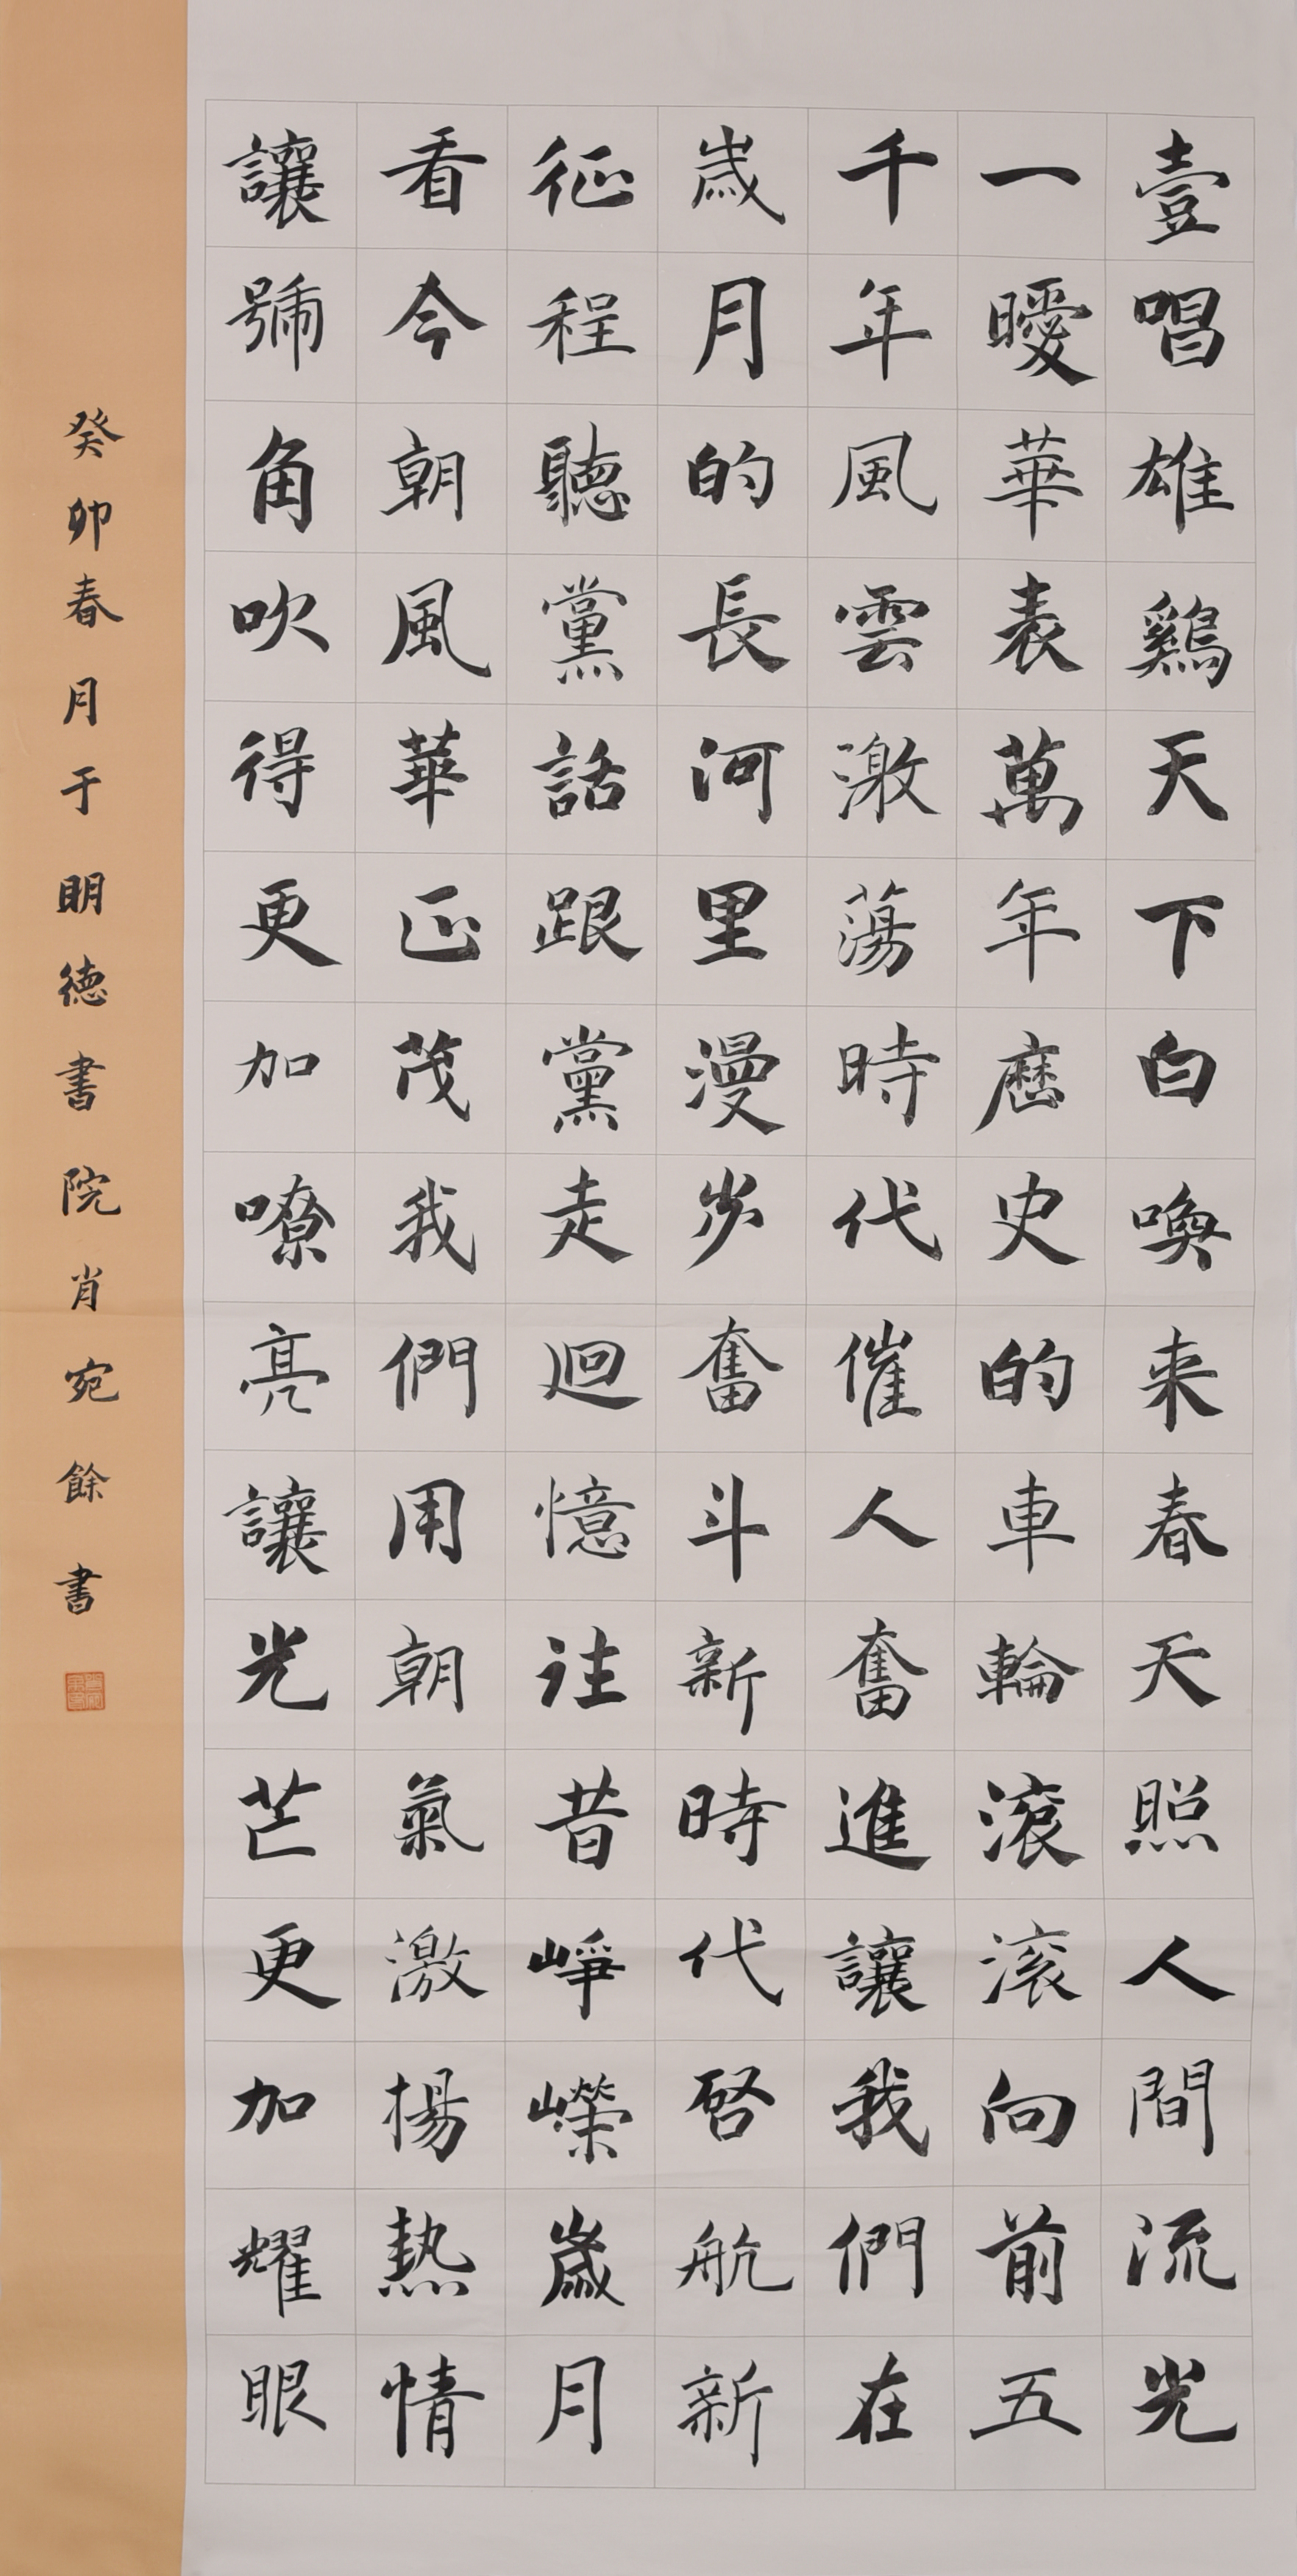 壹唱雄鷄天下白喚来春天照人間流光
一曖華表萬年歷史的車輪滾滚向前五
千年風雲激蕩時代催人奮進讓我們在
歲月的長河里漫步奮斗新時代啓航新
征程聽黨話跟黨走迴憶往昔崢嶸歲月
看今朝風華正茂我們用朝氣激揚熱情
讓號角吹得更加嘹亮讓光芒更加耀眼
癸卯春月于明德書院肖宛餘書